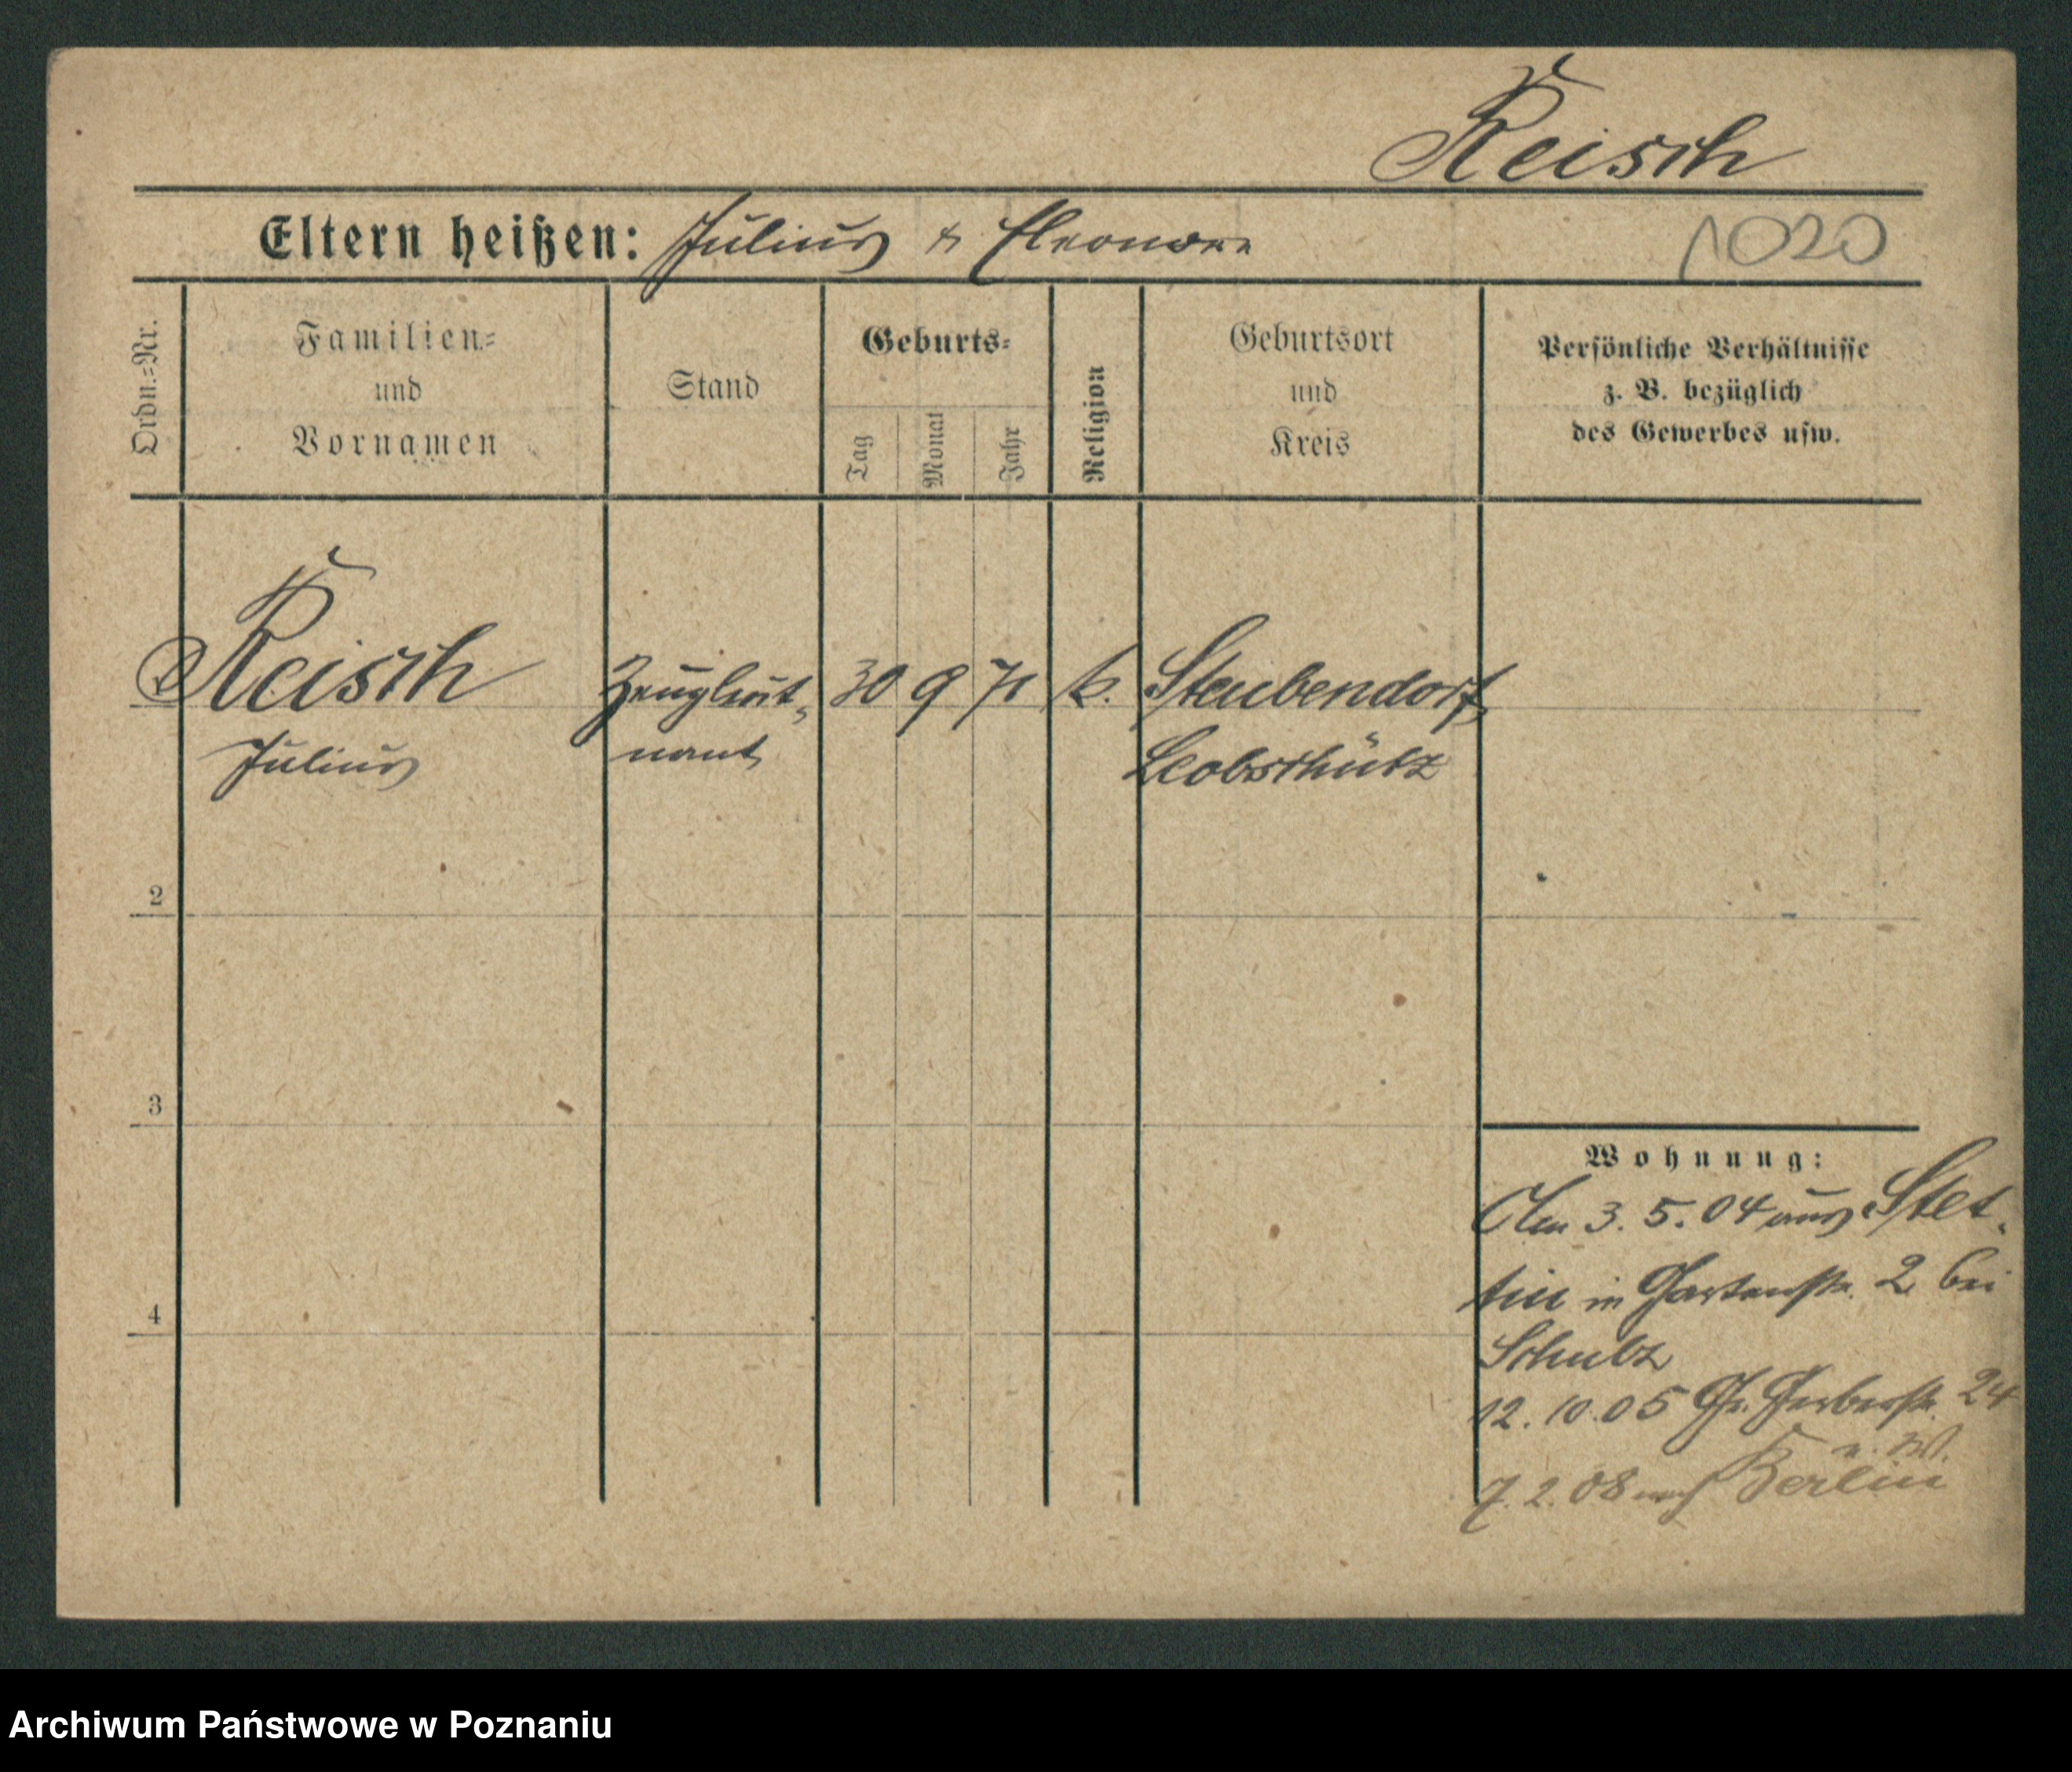 Reisch
Eltern heißen: Julius & Eleonore
1020
Ordn.=Nr.
Familien=
und
Vornamen
Stand
Geburts=
Tag
Monat
Jahr
Religion
Geburtsort
und
Kreis
Persönliche Verhältnisse
z. B. bezüglich
des Gewerbes usw.
Reisch
Julius
Zeugleut-
nant
30 9 71
k.
Steubendorf
Leobschütz
2
3
4
Wohnung:
Am 3. 5. 04 aus Stet-
tin in Gartenstr. 2 bei
Schulz
12. 10. 05 Gr. Gerberstr. 24
7. 2. 08 nach Berlin
Archiwum Państwowe w Poznaniu